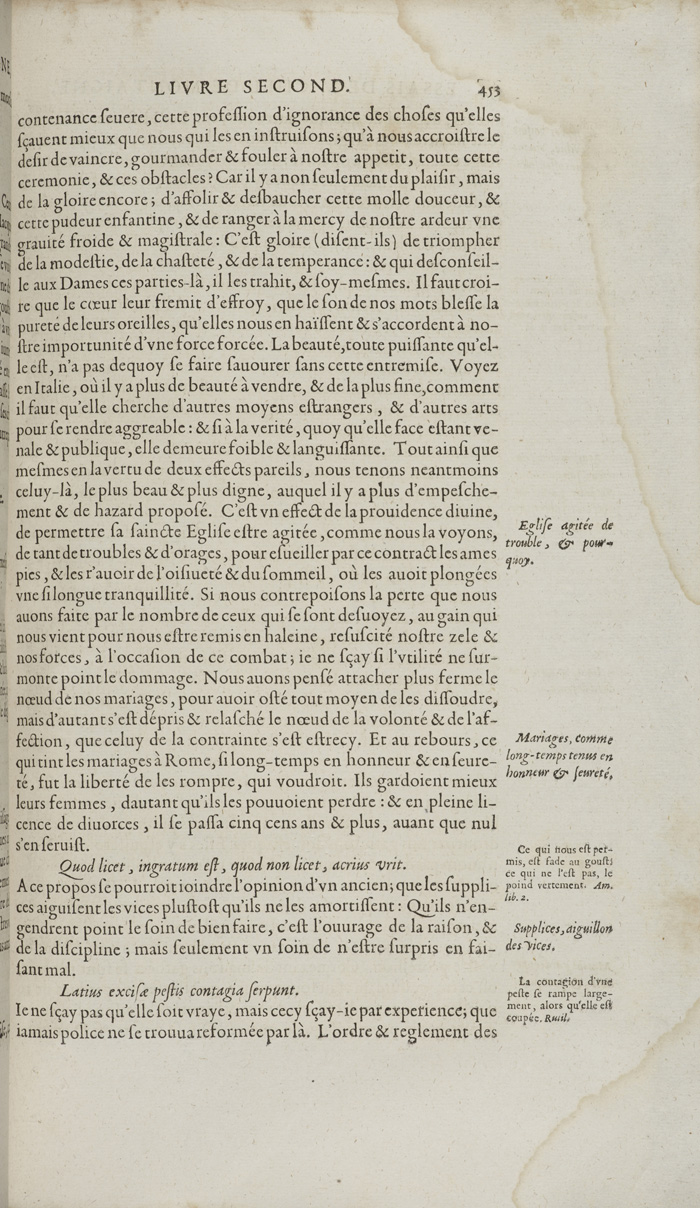 LIVRE SECOND. 453
contenance ſeuere, cette profeſſion d'ignorance des choſes qu'elles
ſçauent mieux que nous qui les en inſtruiſons; qu'à nous accroiſtre le
deſir de vaincre, gourmander & fouler à noſtre appetit, toute cette
ceremonie, & ces obſtacles? Car il y a non ſeulement du plaiſir, mais
de la gloire encore; d'affolir & deſbaucher cette molle douceur, &
cette pudeur enfantine, & de ranger à la mercy de noſtre ardeur vne
grauité froide & magiſtrale: C'eſt gloire (diſent-ils) de triompher
de la modeſtie, de la chaſteté, & de la temperance: & qui deſconſeil-
le aux Dames ces parties-là, il les trahit, & ſoy-meſmes. Il faut croi-
re que le cœur leur fremit d'effroy, que le ſon de nos mots bleſſe la
pureté de leurs oreilles, qu'elles nous en haïſſent & s'accordent à no-
ſtre importunité d'vne force forcée. La beauté, toute puiſſante qu'el-
le eſt, n'a pas dequoy ſe faire ſauourer ſans cette entremiſe. Voyez
en Italie, où il y a plus de beauté à vendre, & de la plus fine, comment
il faut qu'elle cherche d'autres moyens eſtrangers, & d'autres arts
pour ſe rendre aggreable: & ſi à la verité, quoy qu'elle face eſtant ve-
nale & publique, elle demeure foible & languiſſante. Tout ainſi que
meſmes en la vertu de deux effects pareils, nous tenons neantmoins
celuy-là, le plus beau & plus digne, auquel il y a plus d'empeſche-
ment & de hazard propoſé. C'eſt vn effect de la prouidence diuine,
de permettre ſa ſaincte Egliſe eſtre agitée, comme nous la voyons,
de tant de troubles & d'orages, pour eſueiller par ce contract les ames
pies, & les r'auoir de l'oiſiueté & du ſommeil, où les auoit plongées
vne ſi longue tranquillité. Si nous contrepoiſons la perte que nous
auons faite par le nombre de ceux qui ſe ſont deſuoyez, au gain qui
nous vient pour nous eſtre remis en haleine, reſuſcité noſtre zele &
nos forces, à l'occaſion de ce combat; ie ne ſçay ſi l'vtilité ne ſur-
monte point le dommage. Nous auons penſé attacher plus ferme le
nœud de nos mariages, pour auoir oſté tout moyen de les diſſoudre,
mais d'autant s'eſt dépris & relaſché le nœud de la volonté & de l'af-
fection, que celuy de la contrainte s'eſt eſtrecy. Et au rebours, ce
qui tint les mariages à Rome, ſi long-temps en honneur & en ſeure-
té, fut la liberté de les rompre, qui voudroit. Ils gardoient mieux
leurs femmes, dautant qu'ils les pouuoient perdre: & en pleine li-
cence de diuorces, il ſe paſſa cinq cens ans & plus, auant que nul
s'en ſeruiſt.
Quod licet, ingratum eſt, quod non licet, acrius vrit.
A ce propos ſe pourroit ioindre l'opinion d'vn ancien; que les ſuppli-
ces aiguiſent les vices pluſtoſt qu'ils ne les amortiſſent: Qu'ils n'en-
gendrent point le ſoin de bien faire, c'eſt l'ouurage de la raiſon, &
de la diſcipline; mais ſeulement vn ſoin de n'eſtre ſurpris en fai-
ſant mal.
Latius exciſæ peſtis contagia ſerpunt.
Ie ne ſçay pas qu'elle ſoit vraye, mais cecy ſçay-ie par experience; que
iamais police ne ſe trouua reformée par là. L'ordre & reglement des
Egliſe agitée de
trouble, & pour-
quoy.
Mariages, comme
long-temps tenus en
honneur & ſeureté,
Ce qui nous eſt per-
mis, eſt fade au gouſt;
ce qui ne l'eſt pas, le
poind vertement. Am.
lib. 2.
Supplices, aiguillon
des vices.
La contagion d'vne
peſte ſe rampe large-
ment, alors qu'elle eſt
coupée. Rutil.